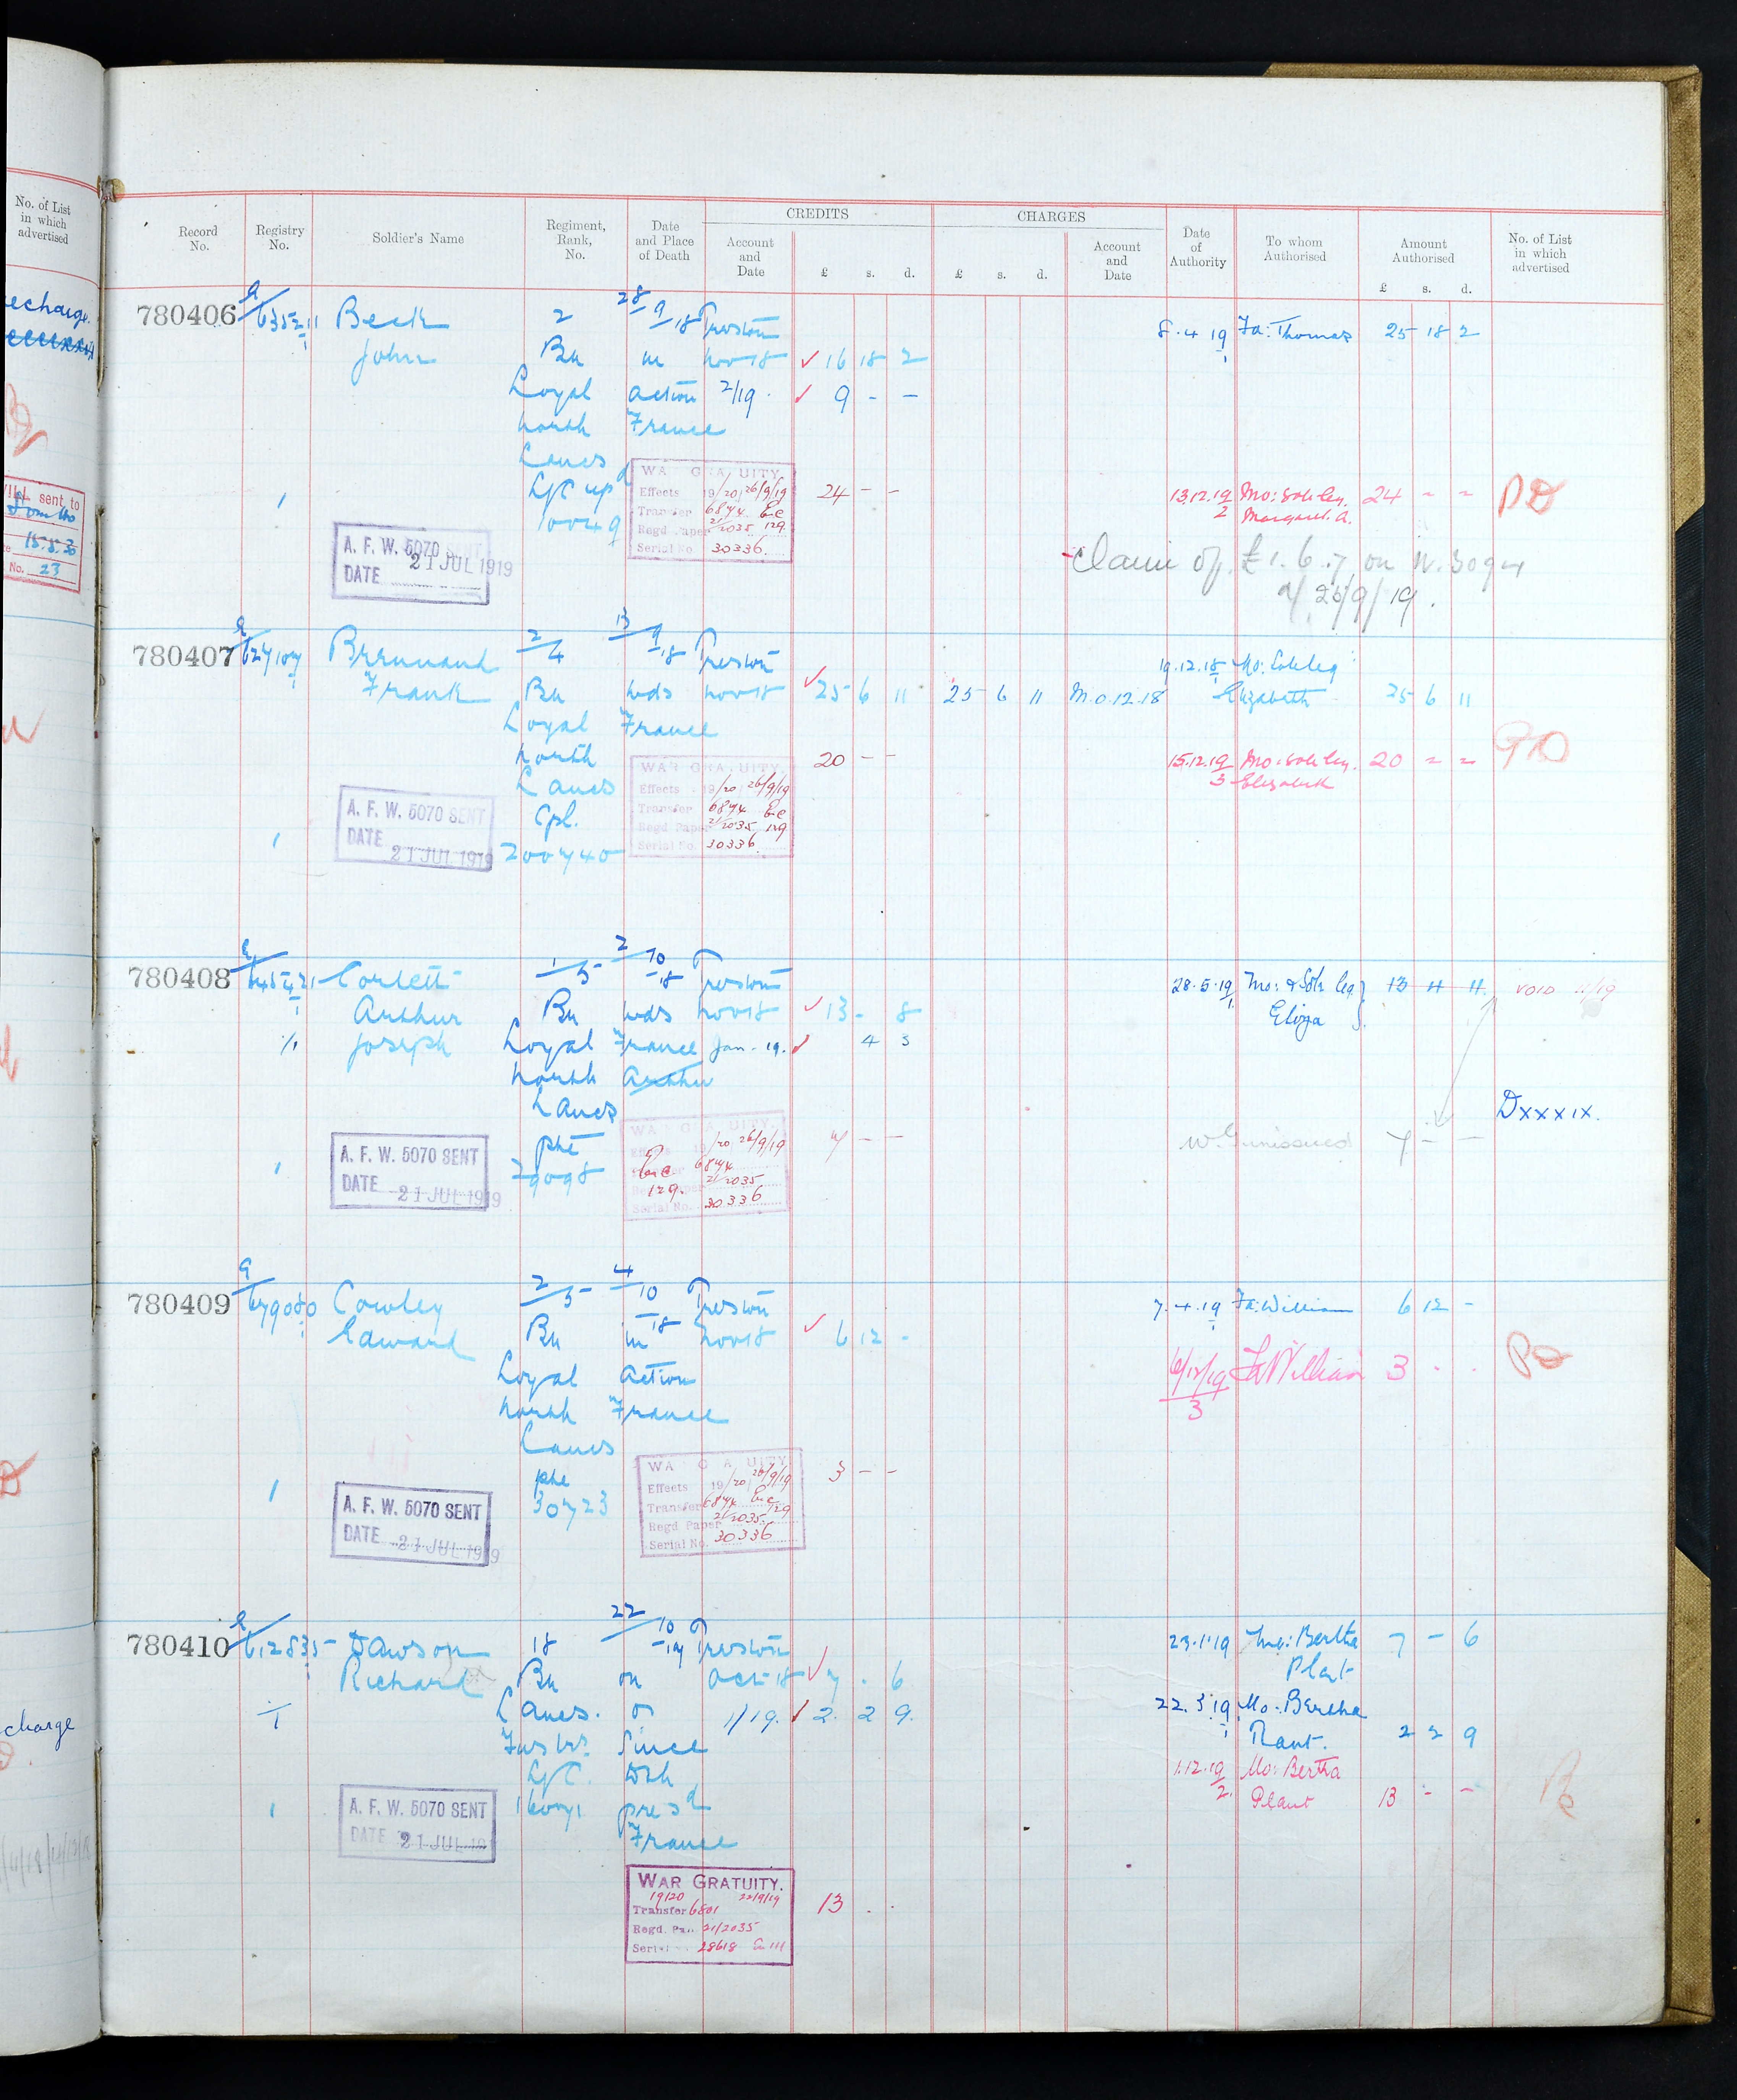 No. of List
in which
advertised
echarge.
sent to
15.8.30
No. 23
charge
CREDITS
CHARGES
Record
No.
Registry
No.
Soldier's Name
Regiment,
Rank,
No.
Date
and Place
of Death
Account
and
Date
£ s. d.
£ s. d.
Account
and
Date
Date
of
Authority
To whom
Authorised
Amount
Authorised
£ s. d.
No. of List
in which
advertised
780406 Beck 2 28/9/18 Preston 8.4.19 Fa: Thomas 25 18 2
John Bn in Nov 18 16 18 2
Loyal action 2/19 9 - -
North France
Lancs
L/C 24 - - 13.12.19 Mo: Sole leg. 24 - -
10049 2 Margaret. A.
WAR GRATUITY.
Effects 19/20 26/9/19
Transfer 6874 Ec
Regd Paper 21/2035 129
Serial No. 30336
A. F. W. 5070 SENT
DATE 21 JUL 1919
Claim of £1.6.7 on W.3094
d/ 26/9/19.
780407 Brennand 2/4 13/9/18 Preston 19.12.18 Mo: Sole leg
Frank Bn wds Nov 18 25 6 11 25 6 11 M.O.12.18 Elizabeth 25 6 11
Loyal France
North 20 - - 15.12.19 Mo: sole leg. 20 - -
Lancs 3 Elizabeth
Cpl.
200740
WAR GRATUITY
Effects 19/20 26/9/19
Transfer 6874 Ec
Regd Paper 21/2035 129
Serial No. 30336
A. F. W. 5070 SENT
DATE 21 JUL 1919
780408 Corlett 1/5 2/10/18 Preston 28.5.19 Mo: & Sole leg 13 4 11 VOID 11/19
Arthur Bn wds Nov 18 13 - 8 Eliza
Joseph Loyal France Jan. 19. 4 3
North Arthur
Lancs Dxxxix.
Pte 7 - - W.G unissued 7 - -
29098
WAR GRATUITY.
19/20 26/9/19
Ec 6874
129. 21/2035
Serial No. 30336
A. F. W. 5070 SENT
DATE 21 JUL 1919
780409 Cowley 2/5 4/10/18 Preston 7.4.19 Fa: William 6 12 -
Edward Bn in Nov 18 6 12 -
Loyal action 6/12/19 Fa William 3 . .
North France 3
Lancs
Pte 3 - -
30723
WAR GRATUITY
Effects 19/20 26/9/19
Transfer 6874 Ec 129
Regd. Paper 21/2035
Serial No. 30336
A. F. W. 5070 SENT
DATE 21 JUL 1919
780410 Dawson 18 22/10/17 Preston 23.1.19 Mo: Bertha 7 - 6
Richard Bn on Oct 18 7 . 6 Plant
Lancs. or 1/19. 2. 2 9. 22.3.19 Mo: Bertha
Fus'rs. Since Plant. 2 2 9
L/C. Dth 1.12.19 Mo: Bertha
pres'd 2. Plant 13 - -
France
A. F. W. 5070 SENT
DATE 21 JUL
WAR GRATUITY.
19/20 22/9/19
Transfer 6801
Regd. Pap. 21/2035
Serial 28618 Ec 111
13 . .